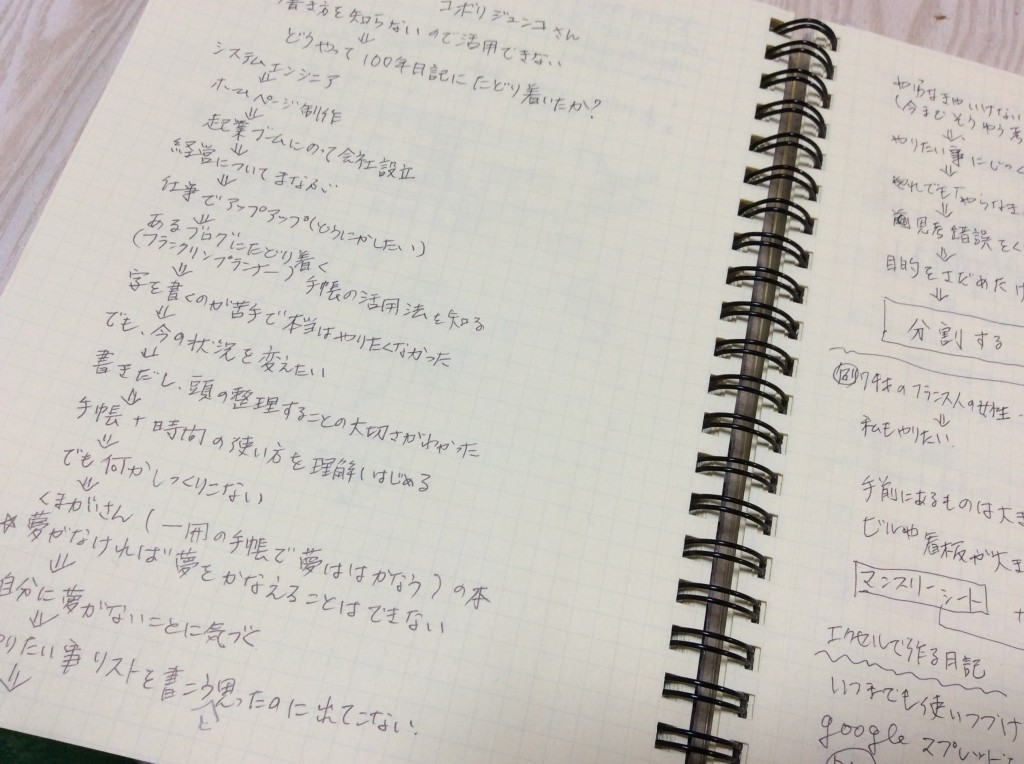 コボリジュンコさん
書き方を知らないので活用できない
⇓
どうやって100年日記にたどり着いたか?
システムエンジニア
⇓
ホームページ制作
⇓
起業ブームにのって会社設立
⇓
経営についてまなぶ
⇓
仕事でアップアップ(どうにかしたい)
⇓
あるブログにたどり着く
(フランクリンプランナー) 手帳の活用法を知る
⇓
字を書くのが苦手で本当はやりたくなかった
⇓
でも、今の状況を変えたい
⇓
書きだし、頭の整理することの大切さがわかった
⇓
手帳+時間の使い方を理解しはじめる
⇓
でも何かしっくりこない
⇓
くまがいさん(一冊の手帳で夢はかなう)の本
☆夢がなければ夢をかなえることはできない
⇓
自分に夢がないことに気づく
⇓
やりたい事リストを書こう思ったのに出てこない
と
⇓
やらなきゃいけない
(今まで そうゆう
⇓
やりたい事に
⇓
それでも「やらなき
⇓
試行錯誤を
⇓
目的をさだめたけ
⇓
分割する
例 フランス人の女性
⇓
私もやりたい
手前にあるものは大き
ビルや看板が大き
マンスリーシート
+
エクセルで作る日記
いつまでも使いつづけ
google スプレッド